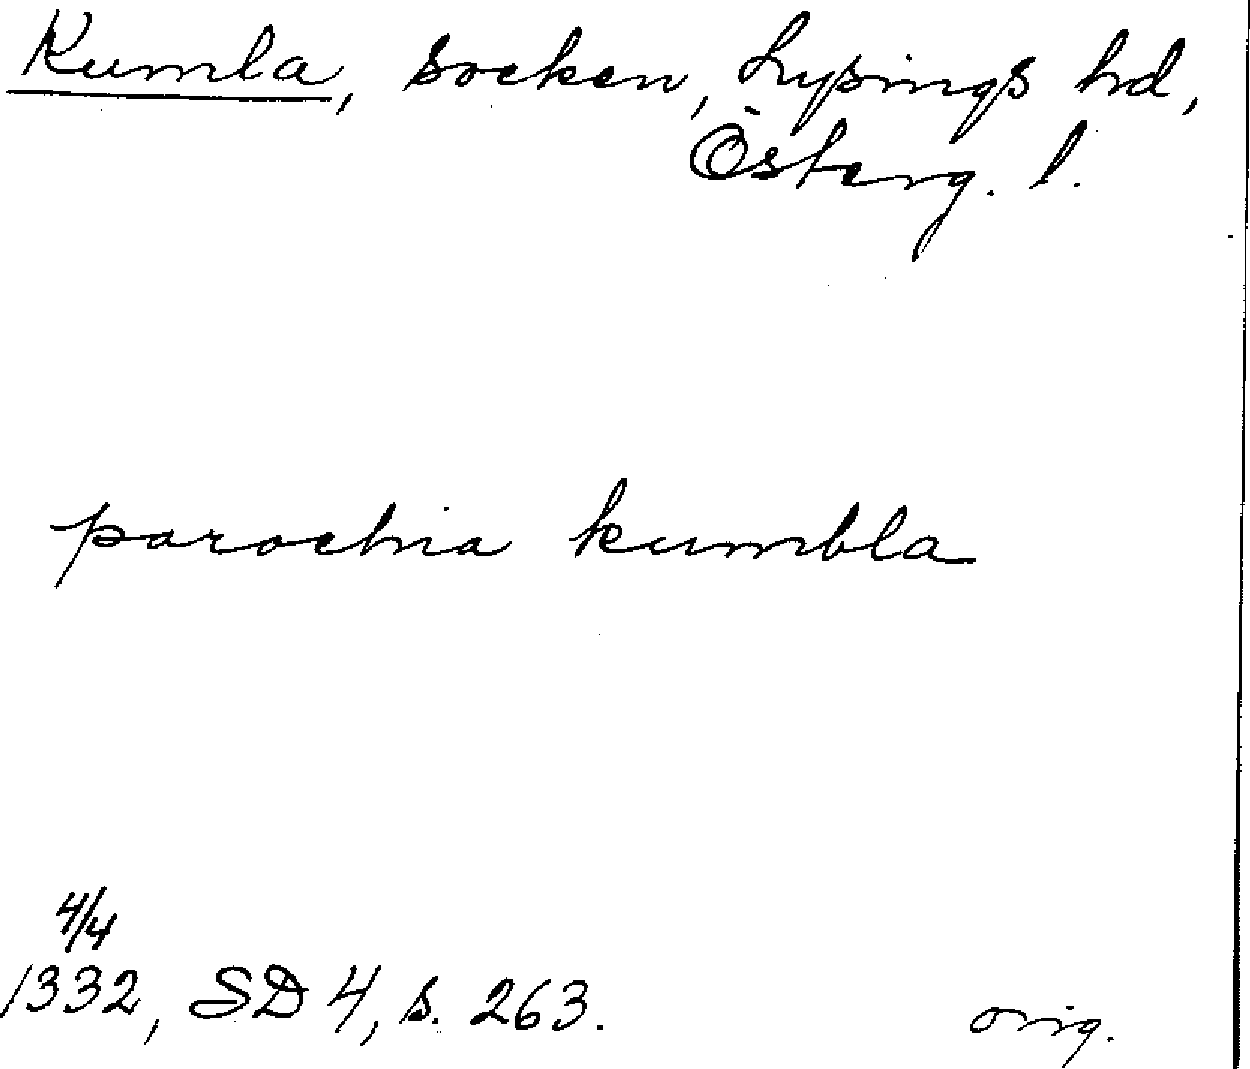 Kumla, socken, Lysings hd,
Österg. l.
parochia kumbla
4/4
1332, SD 4, s. 263.
orig.